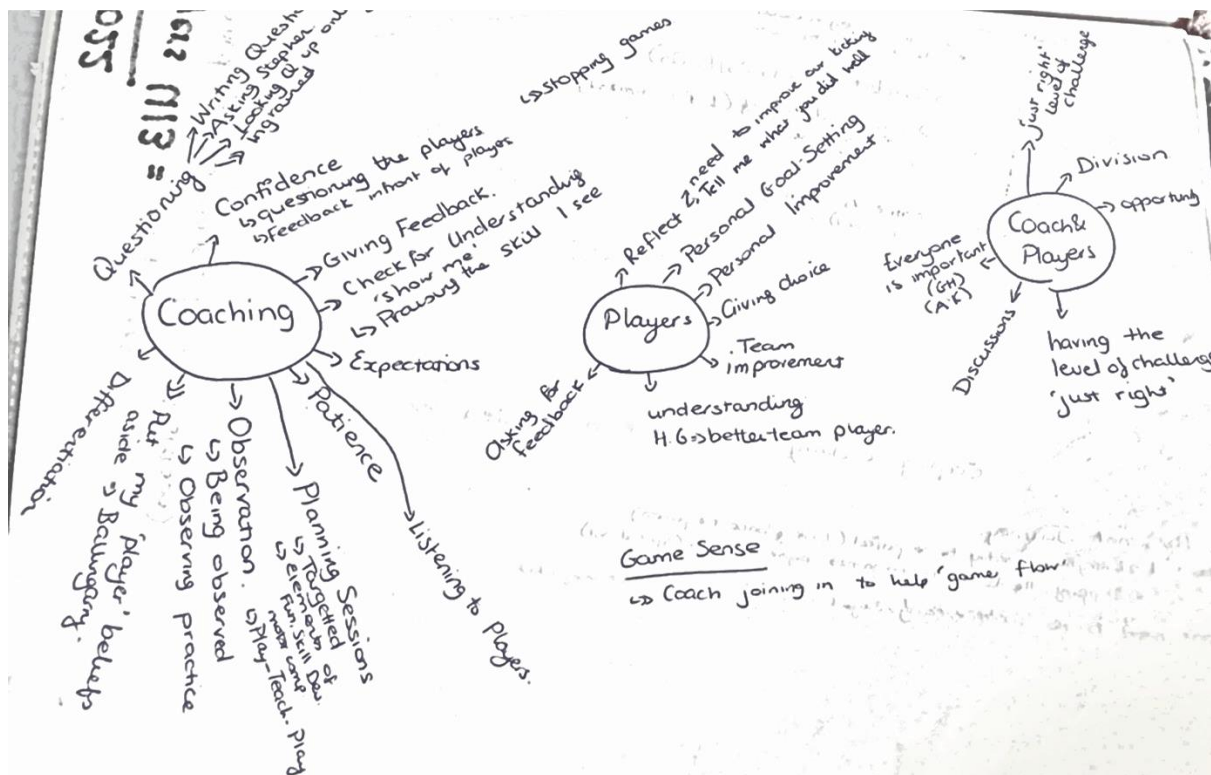 Writing Questi
Asking Stephen
Looking Q up onl
Ingrained
Questioning
↳ stopping games
Confidence
↳ questioning the players
↳ Feedback infront of players
Giving Feedback.
Check for Understanding
'show me'
↳ Praising the skill I see
Coaching
Expectations
Patience
Listening to Players.
Planning Sessions
↳ Targetted
↳ elements of
Fun, Skill Dev.
motor comp
↳ Play-Teach-Play
Observation.
↳ Being observed
↳ Observing practice
Put my 'player' beliefs
aside → Ballingarry.
Differentiation
Reflect
need to improve our kicking
Tell me what you did well
Personal Goal-Setting
Personal Improvement
Giving choice
Players
Team
improvement
understanding
H.G⇒better team player.
Asking for
feedback
'just right'
level of
challenge
Division
opportunity
Coach &
Players
Everyone
is important
(GH)
(A.K)
Discussions
having the
level of challenge
'just right'
Game Sense
↳ Coach joining in to help 'game flow'